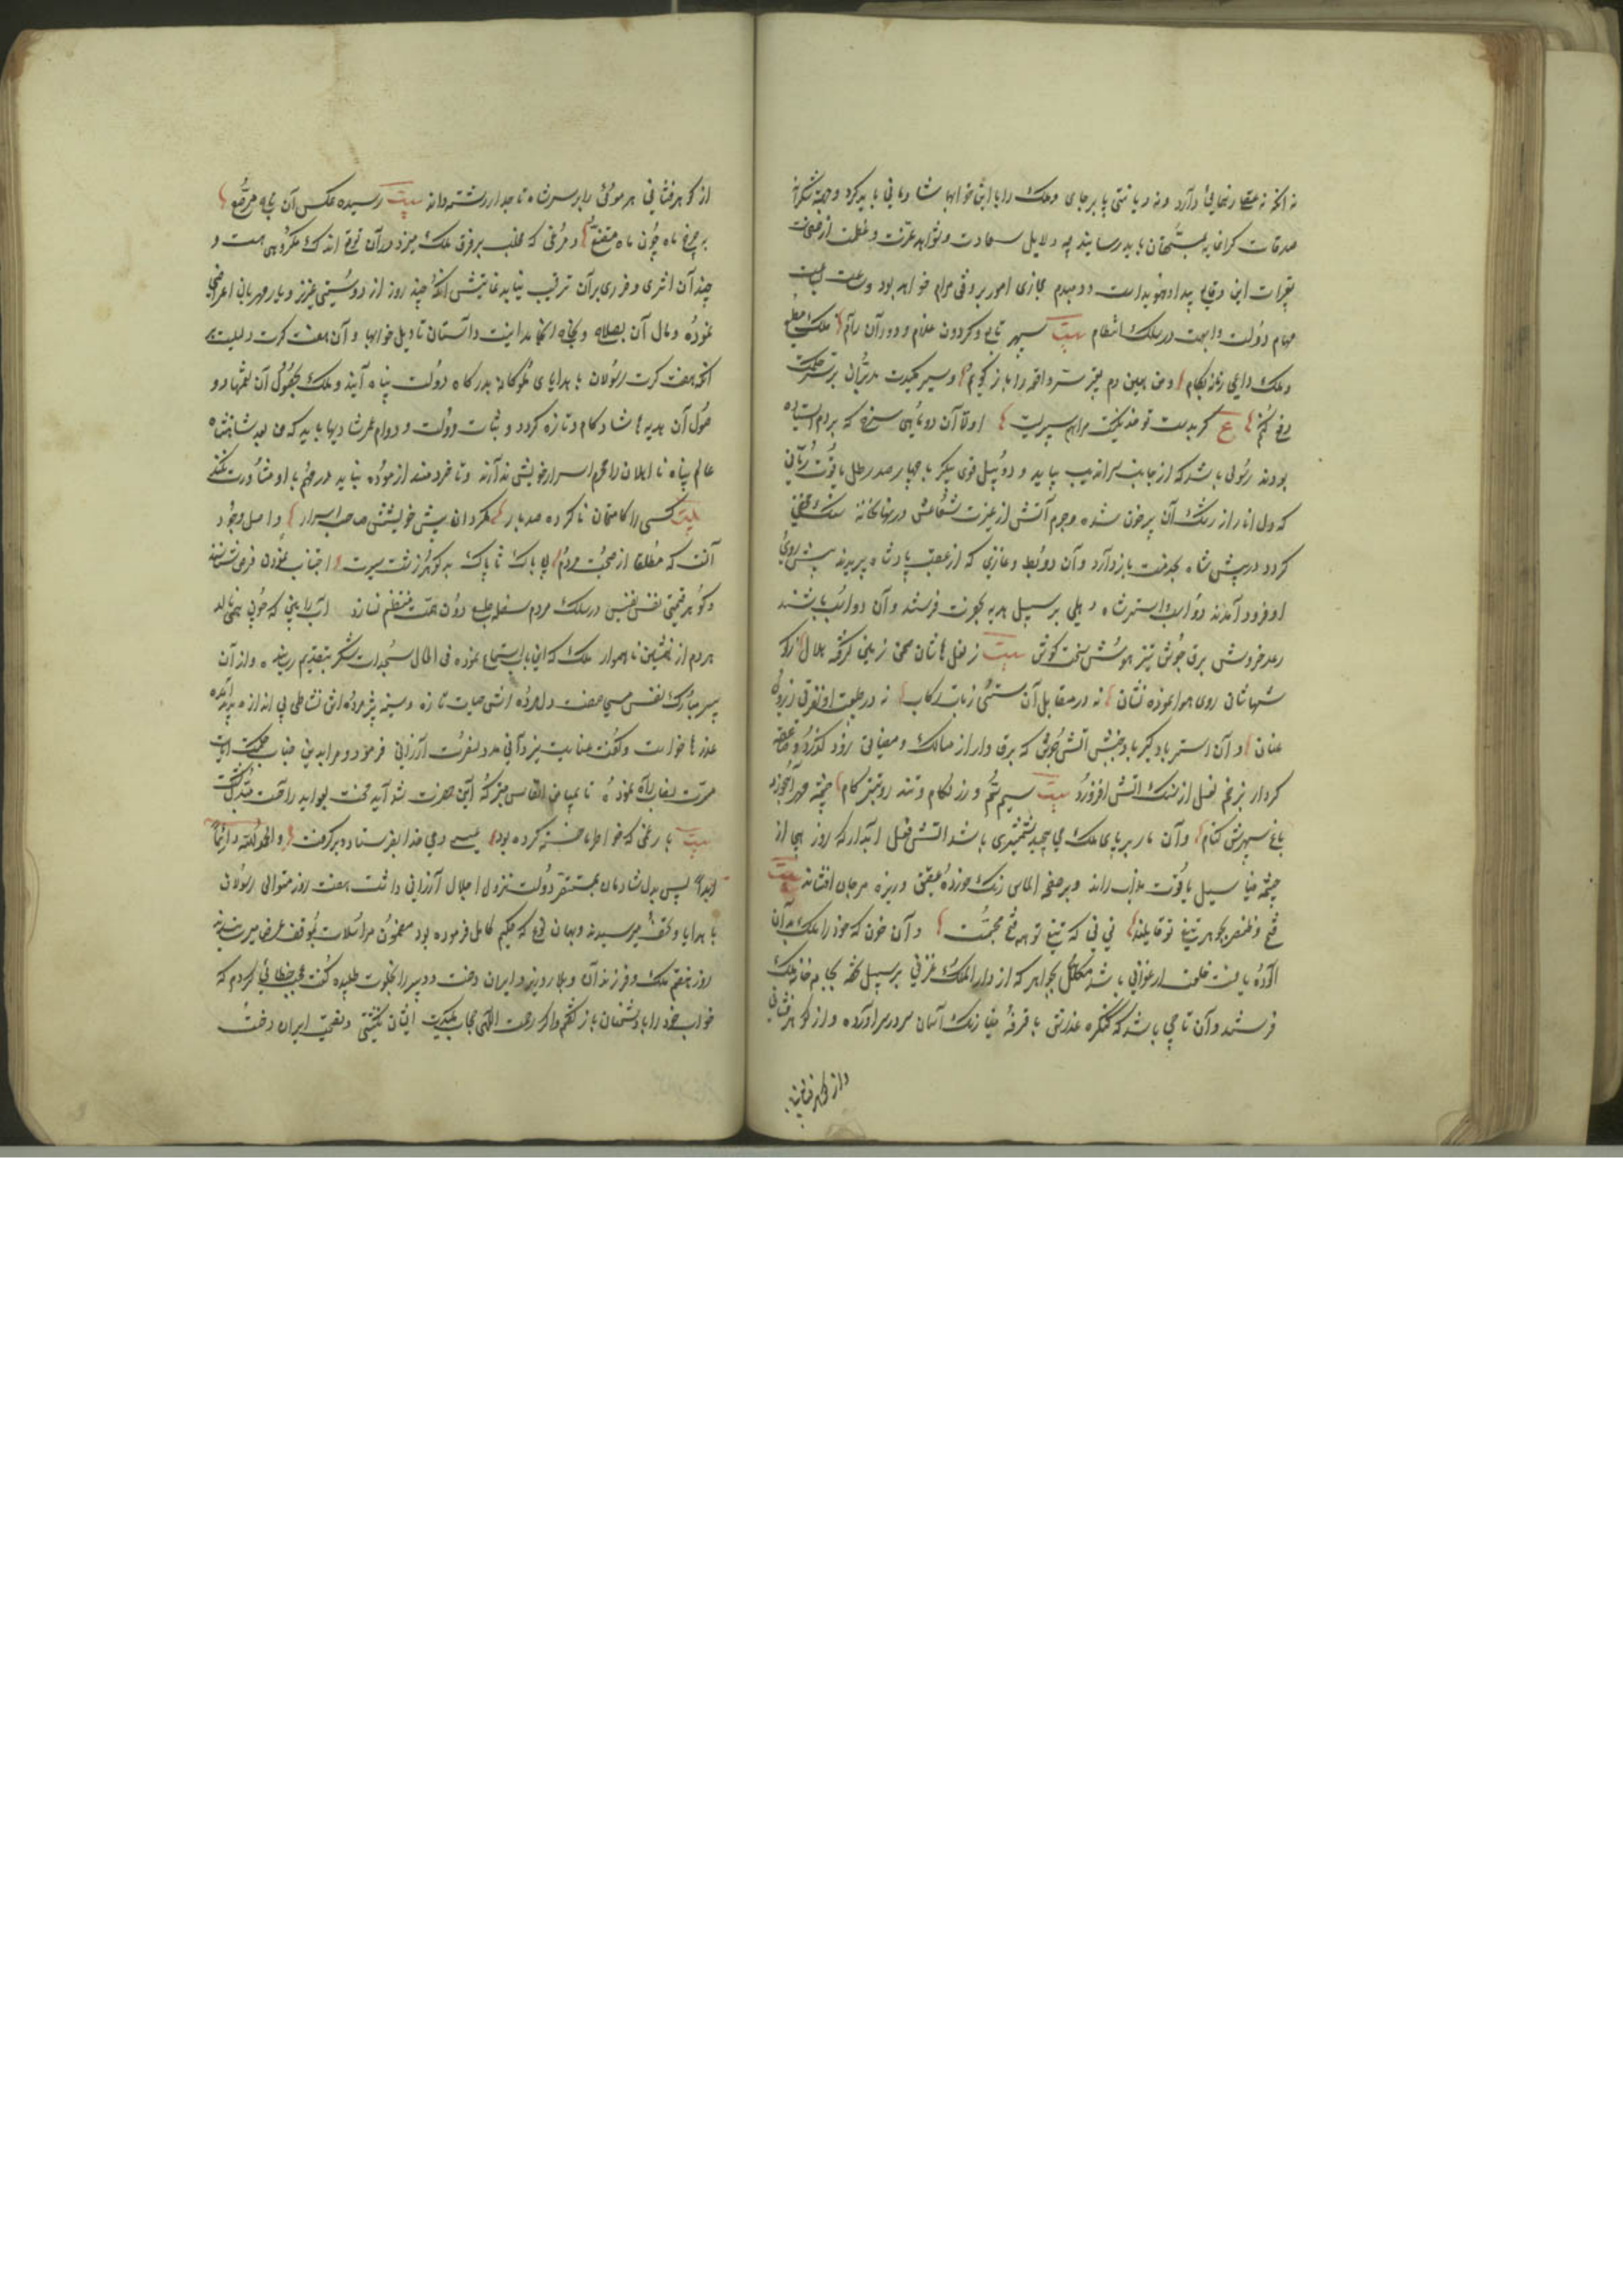 نه آنکه نه عقل رنجانی دارد ونه دیانتی پا برجای وملک را با این خوابها شادمانی باید کرد و جهة شکرانه
صدقات کرانمایه بمستحقان باید رسانید چه دلایل سعادت وشواهد عزت وعظمت از صفحات
تغیرات این وقایع پیدا وهویداست و دمبدم مجازی امور بر وفق مرام خواهد بود و ساعت بساعت
مهام دولت وابهت در سلک انتظام بیت سپهر تابع وکردون غلام و دوران رام ملک مطیع
وملک داعی وزمانه بکام ومن همین دم بخیر سر واقعه را باز کویم و سپر مکیدت مدبران بر تیغ حکمت
دفع کنم ع کر بدست تو خدنکیست مرا هم سپریست اولا آن دو ماهی سرخ که بر دم ایستاده
بودند رسولی باشد که از جانب سراندیب بیاید و دو پیل قوی پیکر با چهار صد رطل یاقوت رمانی
که دل انار از رشک آن پر خون شده وجرم آتش از غیرت شعاعش در نهانخانه سنک مخفی
کردد در پیش شاه بخدمت باز دارد وآن دو بط وغازی که از عقب پادشاه پریدند پیش روی
او فرود آمدند دو اسب واستر شاه دهلی بر سبیل هدیه بحضرت فرستد وآن دو اسب باشند
رعد خروش برق جوش تیز هوش سخت کوش بیت ز نعل هاشان صحن زمین کرفته هلال ز کوش
شهاشان روی هوا نموده نشان نه در مقابل آن سستئی زتاب رکاب نه در طبیعت او نفرتی ز زور
عنان وآن استر باد پیکر باد جنبش آتش جوش که برق وار از مسالک ومضایق زود کذرد و صاعقه
کردار بزخم نعل از سنک آتش افروزد بیت سیم سم و زر لکام وتند رو تیز کام چشمه مهر آبخورد
باغ سپهرش کنام وآن مار بر پای ملک می پیچید شمشیری باشد آتش فعل آبدار که روز هیجا از
چشمه مینا سیل یاقوت مذاب راند وبر صفحه الماس رنک خورده عقیق وریزه مرجان افشاند بیت
فتح و ظفر بجوهر تیغ تو قایمند نی نی که تیغ تو همه فتح مجسمست وآن خون که خود را ملک بدان
آلوده یافت خلعت ارغوانی باشد مکلل بجواهر که از دار الملک غزنی بر سبیل تحفه بجامه خانه ملک
فرستند وآن تاجی باشد که کنکره عذرتش با غرفه مینا رنک آسمان سر در سر آورده واز کوهرفشانی
واز کوهر فشانی
از کوهر فشانی هر موئی را بر سر شاه تاجدار رشته دانه بیت رسیده عکس آن تاج مرصع
بر چرخ ماه چون ماه مقنع و مرغی که مخلب بر فرق ملک میزد در آن توقع اندک مکروهی هست و
چندان اثری وضرری بر آن ترتیب نیابد غایتش آنکه چند روز از دوستی عزیز ویار مهربان اعراضی
نموده ومآل آن بصلاح ونجاح انجامد اینست داستان تاویل خوابها وآن هفت کرت دلیلست بر
آنکه هفت کرت رسولان با هدایای نکو کانه بدرکاه دولت پناه آیند وملک بحصول آن نعمتها و و
صول آن هدیه ها شادکام وتازه کردد وثبات دولت ودوام عمر شادیها باید که من بعد شاهنشاه
عالم پناه نا اهلان را محرم اسرار خویش نداند وتا خردمند آزموده نیابد در مهم با او مشاورت نکند
بیت کسی را کامتحان نا کرده صد بار مکردان پیش خویشتن صاحب اسرار واصل وجود
آنست که مطلقا از صحبت مردم بی باک ناپاک بد کوهر زشت سیرت اجتناب نمودن فرض شناسند
وکوهر قیمتی نفس نفیس در سلک مردم سفله طبع دون همت منتظم نسازد آب را بین که چون همی نالد
هر دم از همنشین ناهموار ملک که این بشارت استماع نموده فی الحال سجدات شکر بتقدیم رسانیده واز آن
پیر مبارک نفس مسیح صفت دل مرده اش حیات تازه وسینه پژمرده اش نشاطی بی اندازه پدید آمده
عذرها خواست وکفت عنایت یزدانی مدد نصرت ارزانی فرمود ومرا بدین جناب حکمت ایاب
صورت لقا رآه نموده تا بمیامن انفاس متبرکه این حضرت شدآید محنت بفواید راحت متبدل کشت
بیت یا رغمی که خواطر ما خسته کرده بود عیسی دمی خدا بفرستاد وبر کرفت والحمد لله دائماً
ابداً پس بدل شادمان بمستقر دولت نزول اجلال ارزانی داشت هفت روز متوالی رسولان
با هدایا وتحف میرسیدند وبهمان نوع که حکیم کامل فرموده بود مضمون مراسلات بموقف عرض میرسانیدند
روز هفتم ملک وفرزندان وبلار وزیر وایران دخت ودبیر را بخلوت طلبیده کفت عجب خطائی کردم که
خواب خود را با دشمنان باز کفتم واکر رحمت الهی حجاب مکیدت ایشان نکشتی ونصیحت ایران دخت